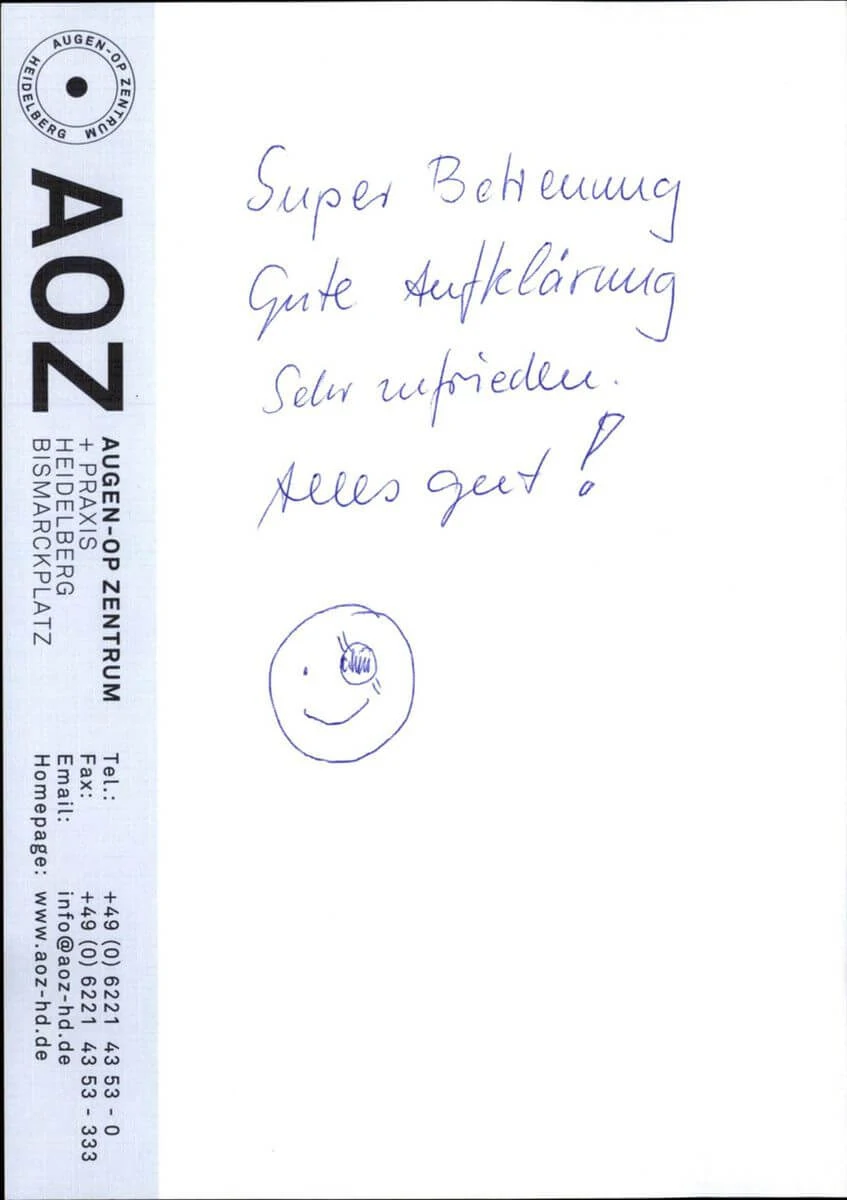 AUGEN-OP ZENTRUM HEIDELBERG
AOZ
AUGEN-OP ZENTRUM
+ PRAXIS
HEIDELBERG
BISMARCKPLATZ
Tel.: +49 (0) 6221 43 53 - 0
Fax: +49 (0) 6221 43 53 - 333
Email: info@aoz-hd.de
Homepage: www.aoz-hd.de
Super Betreuung
Gute Aufklärung
Sehr zufrieden.
Alles gut!